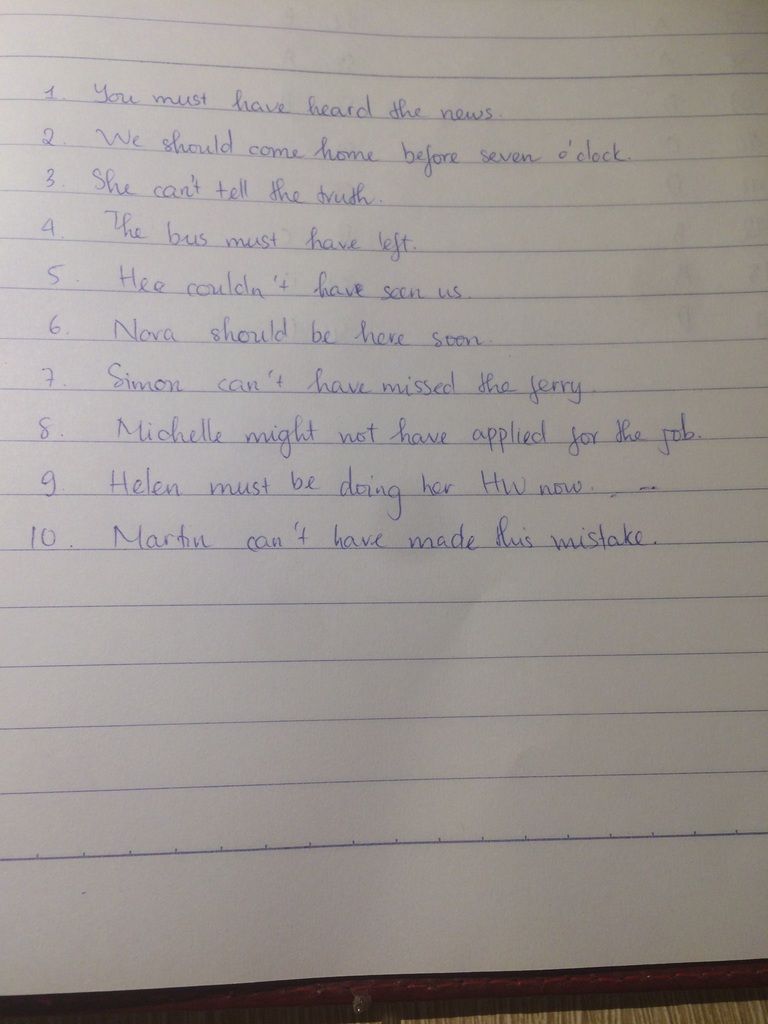 1. You must have heard the news.
2. We should come home before seven o'clock.
3. She can't tell the truth.
4. The bus must have left.
5. Hee couldn't have seen us.
6. Nora should be here soon.
7. Simon can't have missed the ferry.
8. Michelle might not have applied for the job.
9. Helen must be doing her HW now.
10. Martin can't have made this mistake.